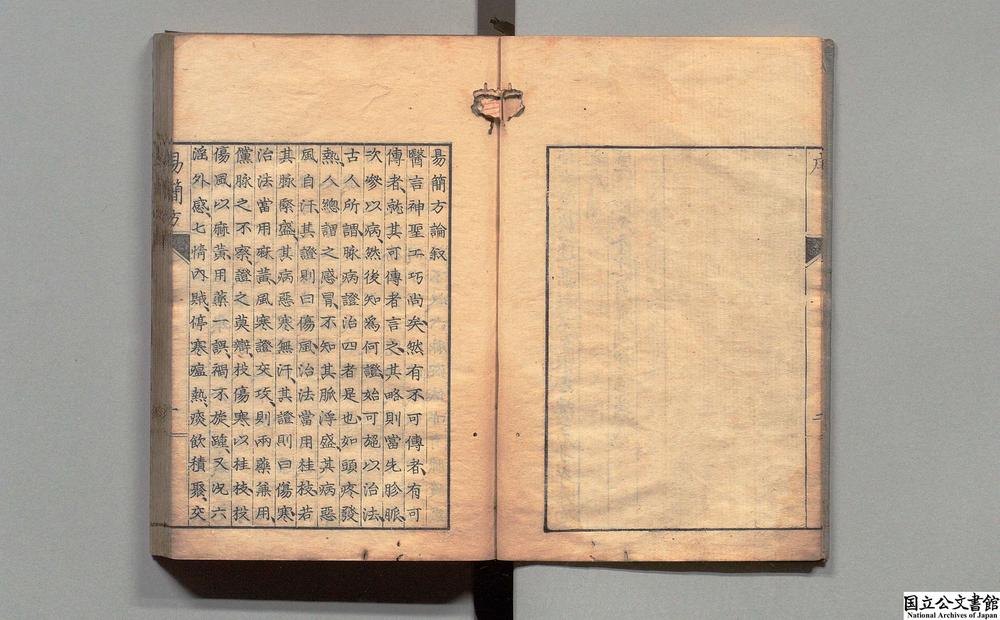 序
二
易簡方論叙
醫言神聖工巧尚矣然有不可傳者有可
傳者就其可傳者言之其略則當先胗脈
次參以病然後知為何證始可施以治法
古人所謂脉病證治四者是也如頭疼發
熱人總謂之感冒不知其脈浮盛其病惡
風自汗其證則曰傷風治法當用桂枝若
其脉緊盛其病惡寒無汗其證則曰傷寒
治法當用麻黃風寒證交攻則兩藥兼用
儻脉之不察證之莫辯投傷寒以桂枝投
傷風以麻黃用藥一誤禍不旋踵又况六
淫外感七情內賊停寒瘟熱痰飲積聚交
易簡方
国立公文書館
National Archives of Japan